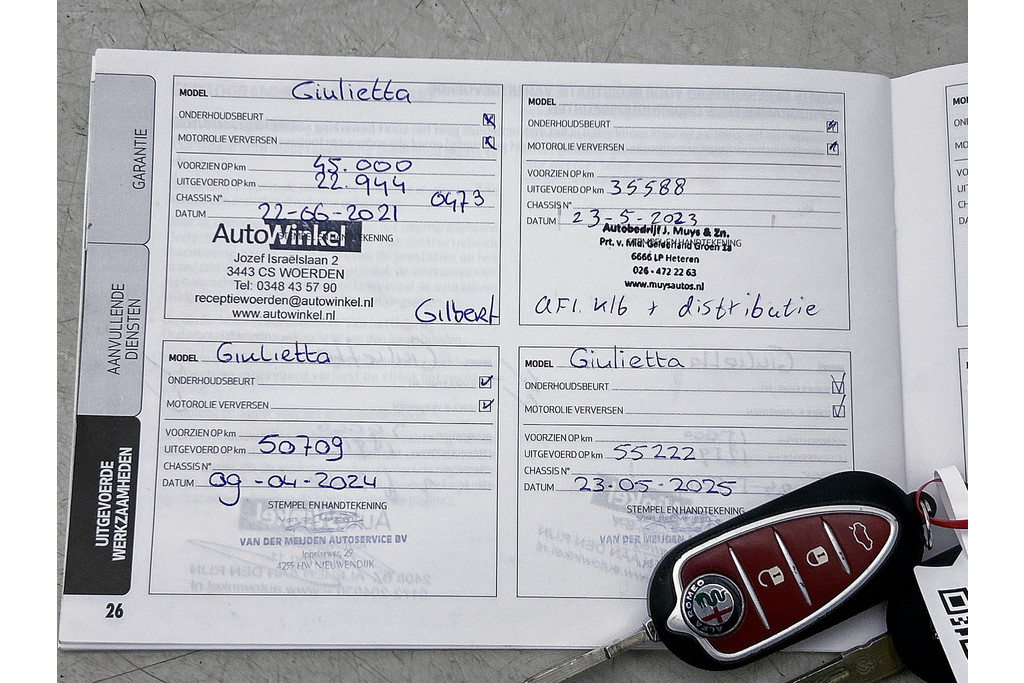 GARANTIE
AANVULLENDE
DIENSTEN
UITGEVOERDE
WERKZAAMHEDEN
26
MODEL Giulietta
ONDERHOUDSBEURT
MOTOROLIE VERVERSEN
VOORZIEN OP km 45.000
UITGEVOERD OP km 22.944
CHASSIS N° 0473
DATUM 22-06-2021
AutoWinkel
Jozef Israëlslaan 2
3443 CS WOERDEN
Tel: 0348 43 57 90
receptiewoerden@autowinkel.nl
www.autowinkel.nl
Gilbert
MODEL
ONDERHOUDSBEURT
MOTOROLIE VERVERSEN
VOORZIEN OP km
UITGEVOERD OP km 35588
CHASSIS N°
DATUM 23-5-2023
STEMPEL EN HANDTEKENING
Autobedrijf J. Muys & Zn.
Prt. v.
6666 LP Heteren
026 - 472 22 63
www.muysautos.nl
+ distributie
MODEL Giulietta
ONDERHOUDSBEURT
MOTOROLIE VERVERSEN
VOORZIEN OP km
UITGEVOERD OP km 50709
CHASSIS N°
DATUM 09-04-2024
STEMPEL EN HANDTEKENING
VAN DER MEIJDEN AUTOSERVICE BV
29
4255 HW NIEUWENDIJK
MODEL Giulietta
ONDERHOUDSBEURT
MOTOROLIE VERVERSEN
VOORZIEN OP km
UITGEVOERD OP km 55222
CHASSIS N°
DATUM 23-05-2025
STEMPEL EN HANDTEKENING
VAN DER MEIJDEN
ALFA ROMEO